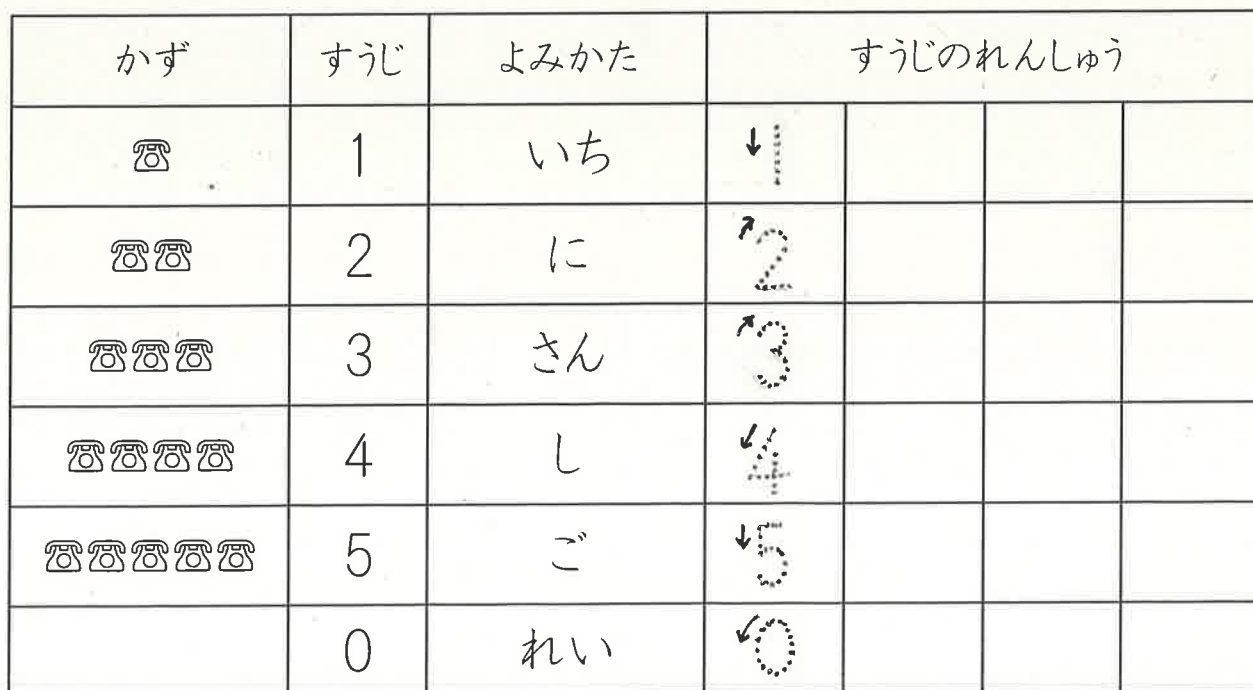 かず すうじ よみかた すうじのれんしゅう
☎ 1 いち 1
☎☎ 2 に 2
☎☎☎ 3 さん 3
☎☎☎☎ 4 し 4
☎☎☎☎☎ 5 ご 5
0 れい 0